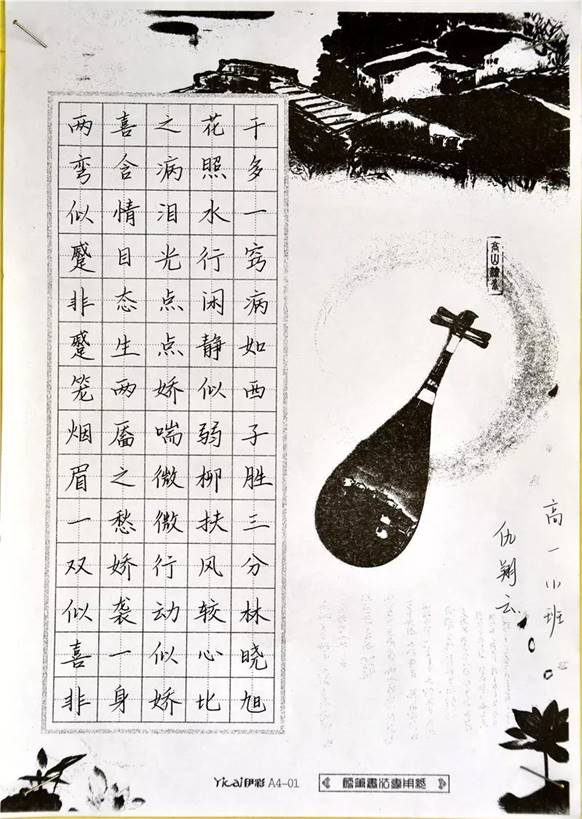 两弯似蹙非蹙笼烟眉一双似喜非
喜含情目态生两靥之愁娇袭一身
之病泪光点点娇喘微微行动似娇
花照水行闲静似弱柳扶风较心比
干多一窍病如西子胜三分林晓旭
高一小班
仇翔云
Yicai伊彩 A4-01
硬筆書法專用紙